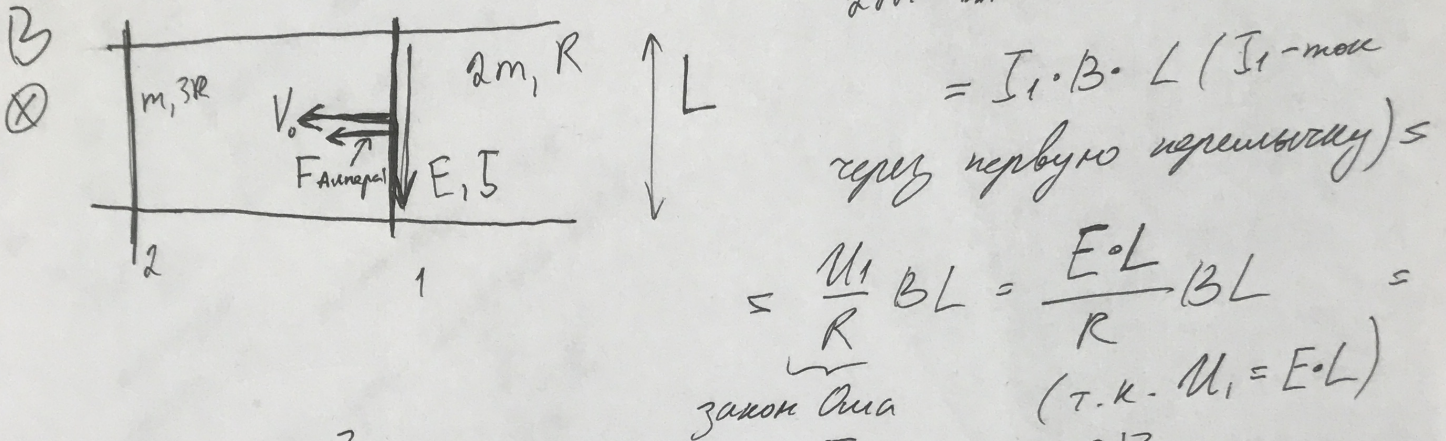 B
⊗
m, 3R
V₀
F Ампера
E, I
2m, R
L
2
1
= I₁·B·L (I₁-ток
через первую перемычку) =
= U₁/R BL = E·L/R BL =
закон Ома
(т.к. U₁ = E·L)